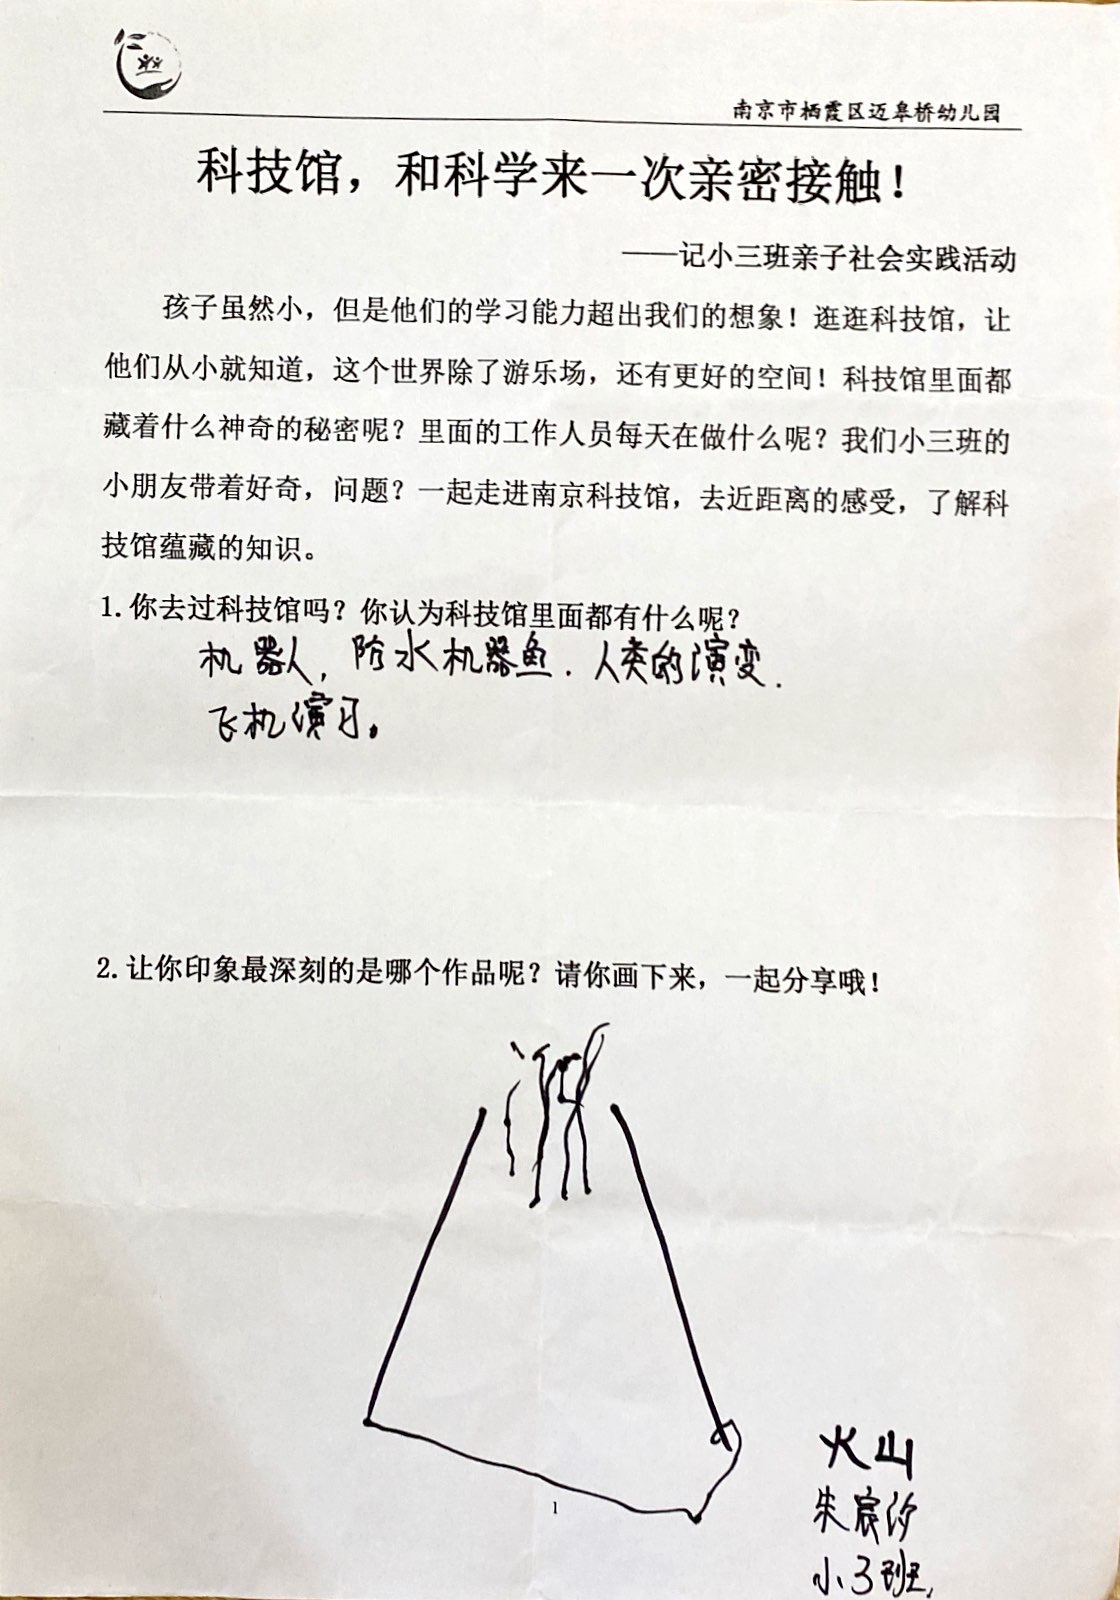 南京市栖霞区迈皋桥幼儿园
科技馆，和科学来一次亲密接触！
——记小三班亲子社会实践活动
孩子虽然小，但是他们的学习能力超出我们的想象！逛逛科技馆，让
他们从小就知道，这个世界除了游乐场，还有更好的空间！科技馆里面都
藏着什么神奇的秘密呢？里面的工作人员每天在做什么呢？我们小三班的
小朋友带着好奇，问题？一起走进南京科技馆，去近距离的感受，了解科
技馆蕴藏的知识。
1.你去过科技馆吗？你认为科技馆里面都有什么呢？
机器人，防水机器鱼．人类的演变．
飞机演习。
2.让你印象最深刻的是哪个作品呢？请你画下来，一起分享哦！
火山
朱宸汐
小3班，
1